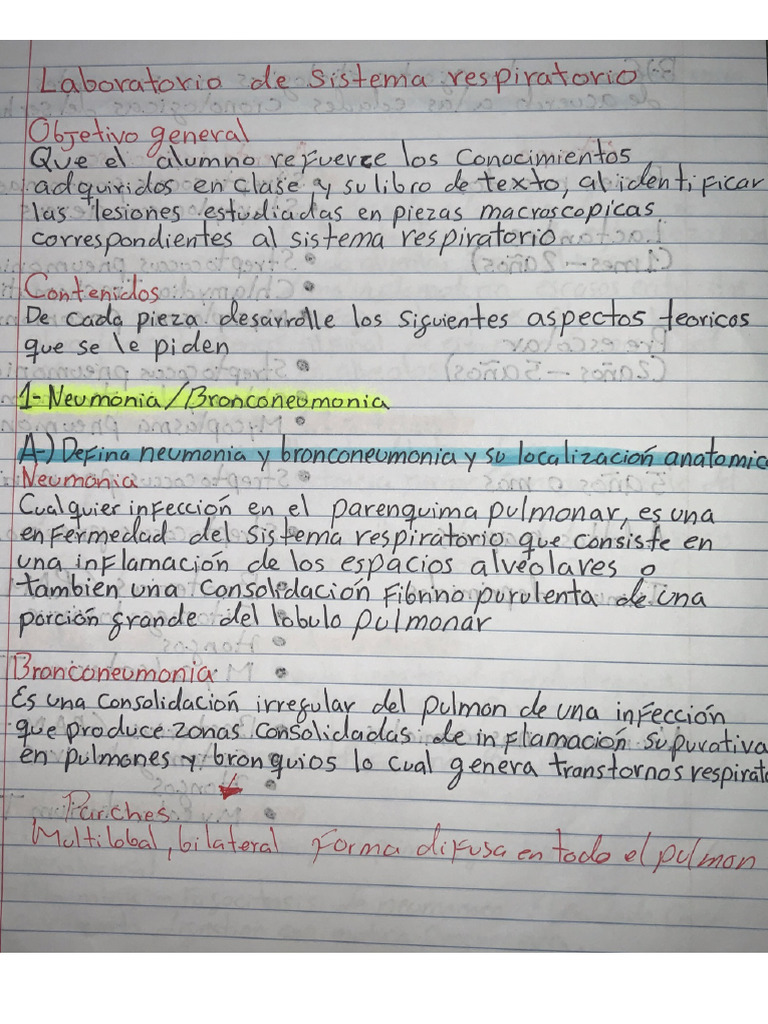 Laboratorio de sistema respiratorio
Objetivo general
Que el alumno refuerce los conocimientos
adquiridos en clase y su libro de texto, al identificar
las lesiones estudiadas en piezas macroscopicas
correspondientes al sistema respiratorio
Contenidos
De cada pieza desarrolle los siguientes aspectos teoricos
que se le piden
1-Neumonia/Bronconeumonia
A-) Defina neumonia y bronconeumonia y su localización anatomic
Neumonia
Cualquier infección en el parenquima pulmonar, es una
enfermedad del sistema respiratorio que consiste en
una inflamación de los espacios alveolares o
tambien una consolidación Fibrino purulenta de una
porción grande del lobulo pulmonar
Bronconeumonia
Es una consolidación irregular del pulmon de una infección
que produce zonas consolidadas de inflamación supurativa
en pulmones y bronquios lo cual genera transtornos respirat
Parches
Multilobal, bilateral forma difusa en todo el pulmon